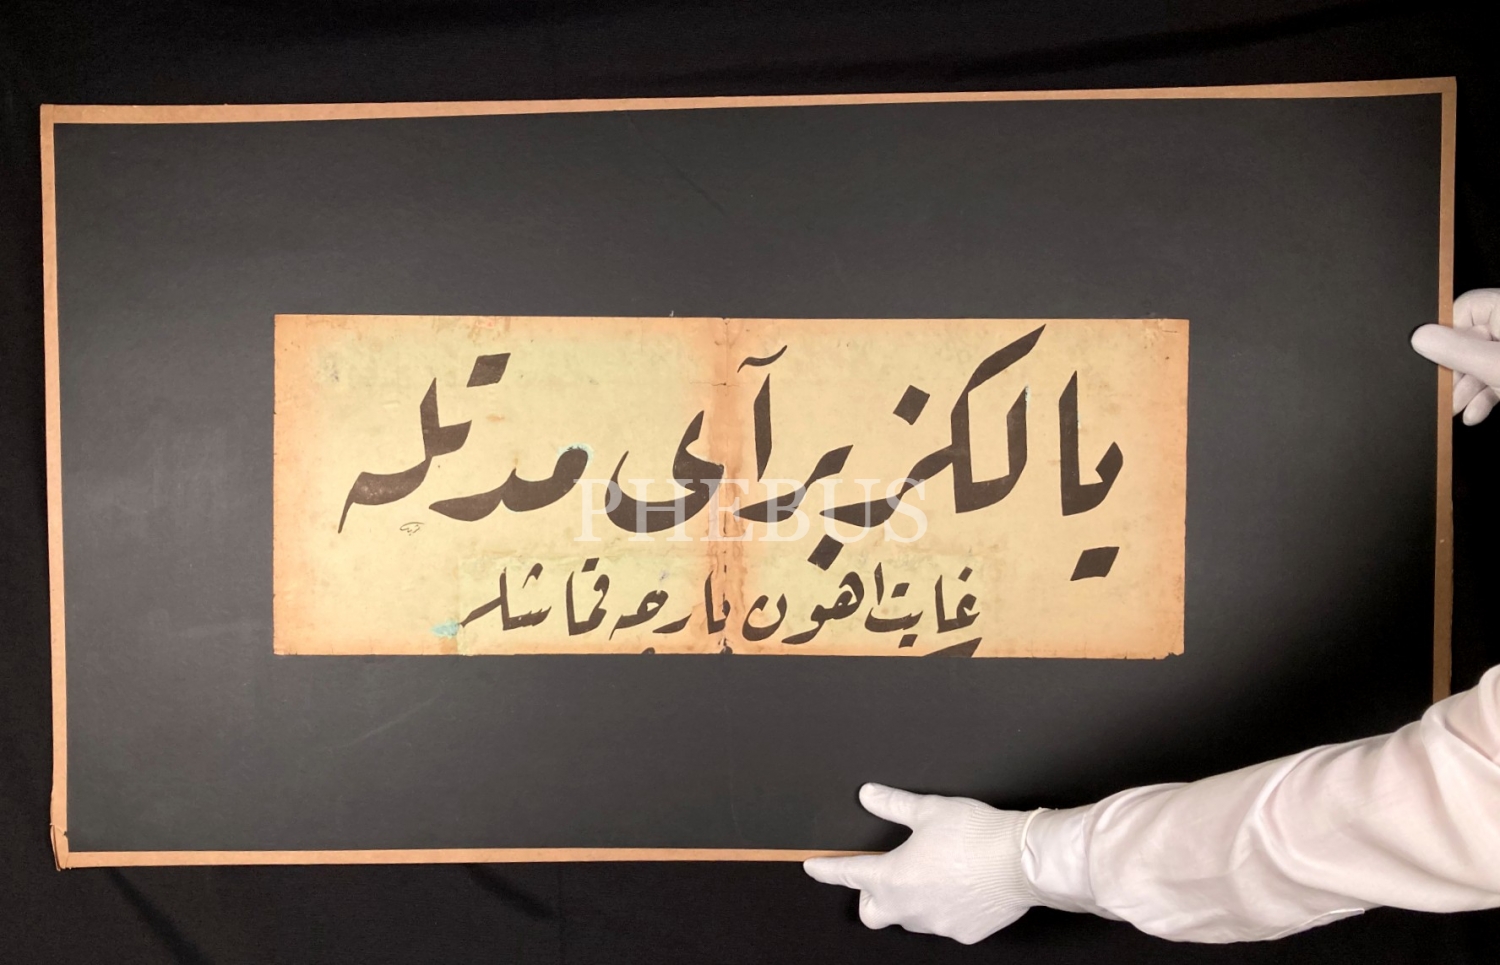 يالكز برآی مدتله
غايت اهون پارچه قماشلر
PHEBUS